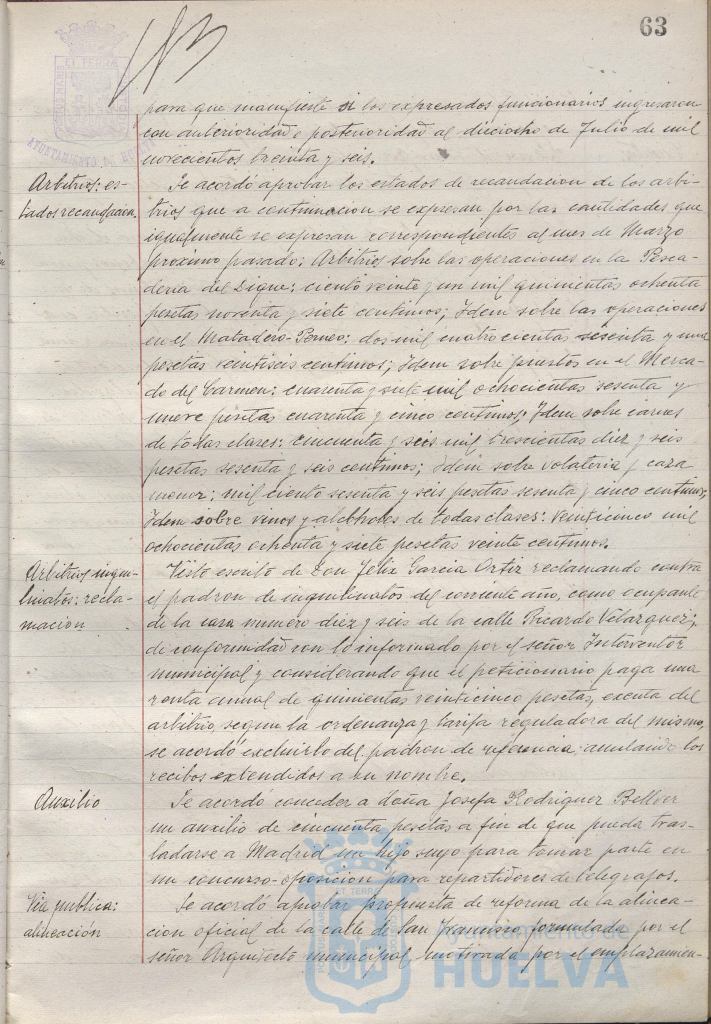 63
para que manifieste si los expresados funcionarios ingresaron
con anterioridad o posterioridad al dieciocho de Julio de mil
novecientos treinta y seis.
Arbitrios: es-
tados recaudacion.
Se acordó aprobar los estados de recaudacion de los arbi-
trios que a continuacion se expresan por las cantidades que
igualmente se expresan correspondientes al mes de Marzo
proximo pasado: Arbitrios sobre las operaciones en la Pesca-
deria del Dique: ciento veinte y un mil quinientas ochenta
pesetas noventa y siete centimos; Idem sobre las operaciones
en el Matadero-Perneo: dos mil cuatrocientas sesenta y una
pesetas veintiseis centimos; Idem sobre puestos en el Merca-
do del Carmen: cuarenta y siete mil ochocientas sesenta y
nueve pesetas cuarenta y cinco centimos; Idem sobre carnes
de todas clases: cincuenta y seis mil trescientas diez y seis
pesetas sesenta y seis centimos; Idem sobre volateria y caza
menor: mil ciento sesenta y seis pesetas sesenta y cinco centimos;
Idem sobre vinos y alcoholes de todas clases: veinticinco mil
ochocientas ochenta y siete pesetas veinte centimos.
Arbitrios inqui-
linatos: recla-
macion
Visto escrito de Don Felix Garcia Ortiz reclamando contra
el padron de inquilinatos del corriente año, como ocupante
de la casa numero diez y seis de la calle Ricardo Velazquez;
de conformidad con lo informado por el señor Interventor
municipal y considerando que el peticionario paga una
renta anual de quinientas veinticinco pesetas, exenta del
arbitrio, segun la ordenanza y tarifa reguladora del mismo,
se acordó excluirlo del padron de referencia, anulando los
recibos extendidos a su nombre.
Auxilio
Se acordó conceder a doña Josefa Rodriguez Bellver
un auxilio de cincuenta pesetas a fin de que pueda tras-
ladarse a Madrid un hijo suyo para tomar parte en
un concurso-oposicion para repartidores de telegrafos.
Via publica:
alineación
Se acordó aprobar propuesta de reforma de la alinea-
cion oficial de la calle de San Francisco, formulada por el
señor Arquitecto municipal, motivada por el emplazamien-
Ayuntamiento de
HUELVA